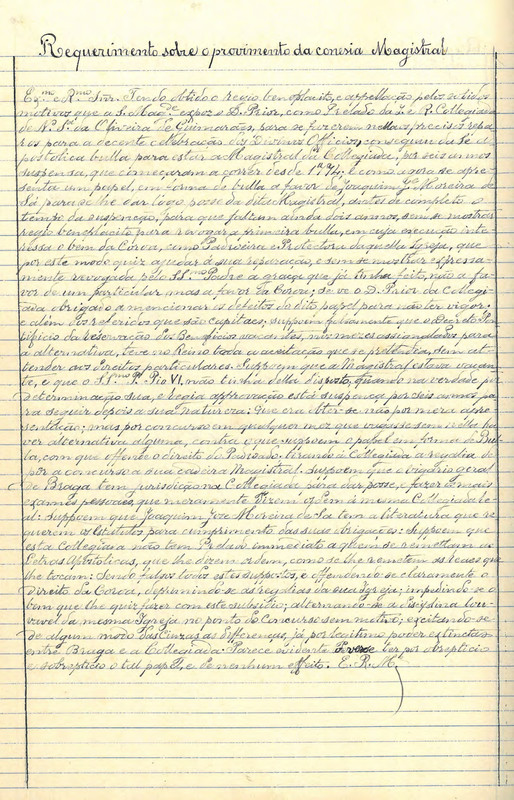 Requerimento sobre o provimento da conesia Magistral
Ex.mo e R.mo Snr. Tendo obtido o regio beneplacito, e appellação pelos solidos
motivos que a S. Mag.de expoz o D. Prior, como Prelado da I. e R. Collegiada
de N. S.ra da Oliveira de Guimarães, para se fazerem nella os precisos repa-
ros para a decente celebração dos Divinos Officios, conseguiu da Sé A-
postolica bulla para estar a Magistral da Collegiada, por seis annos
suspensa, que começaram a correr desde 1794; E como agora se apre-
senta um papel, em forma de bulla a favor de Joaquim J. Moreira de
Sá para se lhe dar logo posse da dita Magistral, antes de completo o
tempo da suspensão, para que faltam ainda dois annos, sem se mostrar
regio beneplacito para revogar a primeira bulla, em cuja execução inte-
ressa o bem da Coroa, como Padroeira e Protectora daquella Igreja, que
por este modo quiz ajudar á sua reparação, e sem se mostrar expressa-
mente revogada pelo SS.mo Padre a graça que já tinha feito, não a fa-
vor de um particular, mas a favor da Coroa; se ve o D. Prior da Collegi-
ada obrigado a mencionar os defeitos do dito papel para não ter vigor:
e alem dos referidos que são capitaes; suppoem falsamente que o Decreto Pon-
tificio da reservação dos Beneficios vacantes, nos mezes assignalados para
a alternativa, teve no Reino toda a aceitação que se pretendia, sem at-
tender aos direitos particulares. Suppoem que a Magistral estava vacan-
te, e que o S.mo P. Pio VI, não tinha della disposto, quando na verdade por
determinação sua, e Regia approvação está suspença por seis annos pa-
ra seguir depois a sua natureza: que era obter-se não por mera apre-
sentação; mas por concurso em qualquer mez que vagasse sem nelles ha-
ver alternativa alguma, contra o que suppoem o papel em forma de Bul-
la, com que offende o direito do Padroado, tirando á Collegiada a regalia de
pôr a concurso a sua cadeira Magistral. Suppoem que o Vigario geral
de Braga tem jurisdição na Collegiada para dar posse, e fazer os mais
exames pessoaes, que meramente dizem ordem á mesma Collegiada Re-
al: suppoem que Joaquim Joze Moreira de Sá tem a literatura que re-
querem os Estatutos para cumprimento das suas obrigações: Suppoem que
esta Collegiada não tem Prelado immediato a quem se remettam as
Letras Apostolicas, que lhe dizem ordem, como se lhe remettem as Reaes que
lhe tocam: Sendo falsos todos estes suppostos, e offendendo-se claramente o
Direito da Coroa, deprimindo-se as regalias da sua Igreja; impedindo-se o
bem que lhe quiz fazer com este subsidio; alternando-se a disciplina lou-
vavel da mesma Igreja no ponto do Concurso sem motivo; excitando-se
de algum modo das Cinzas as differenças, já por legitimo poder extinctas
entre Braga e a Collegiada. Parece evidente dever ser por obrepticio
e subrepticio o tal papel, e de nenhum effeito. E. R. M.